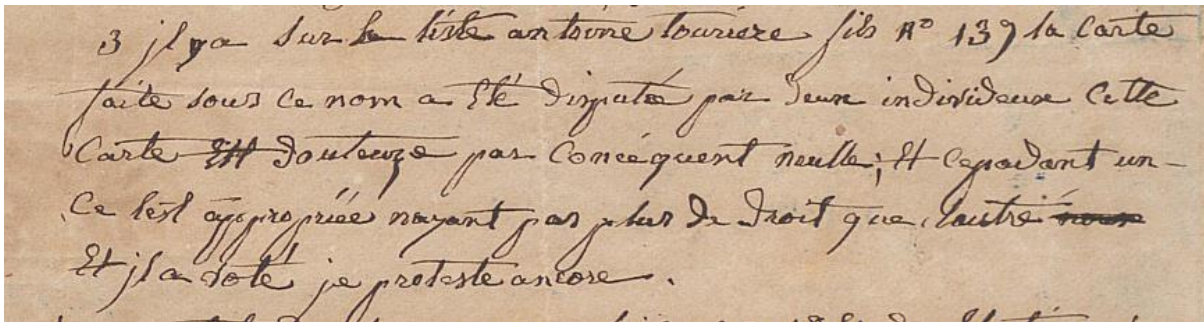 3 jl ya sur la liste antoine touriere fils N° 139 la Carte
faite sous ce nom a Eté disputée par deux individeux Cette
Carte Est douteuze par Concéquent neulle; Et cepadant un-
Ce lest appropriée nayant pas plus de droit que lautre
Et jl a voté je proteste ancore.